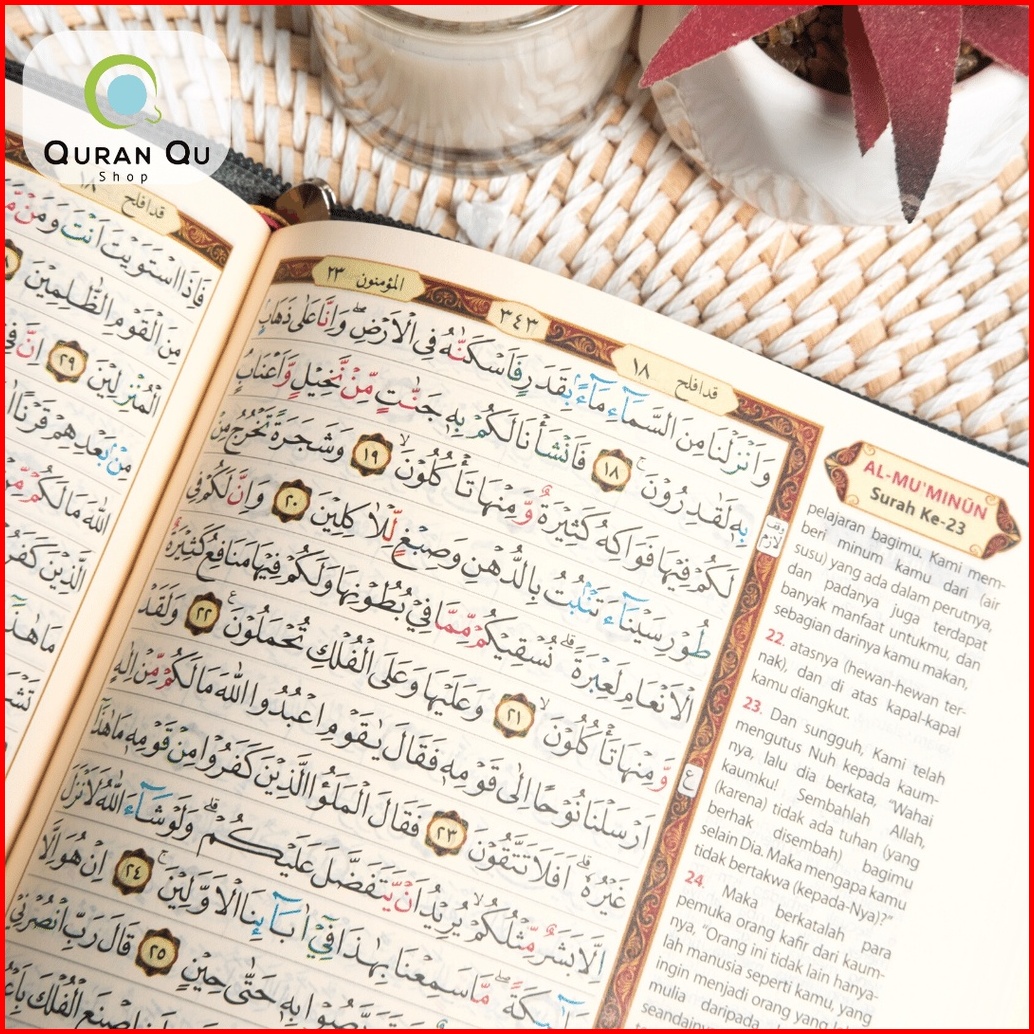 QURAN QU
Shop
١٨ قدافلح
فَاِذَا اسْتَوَيْتَ اَنْتَ وَمَنْ
مِنَ الْقَوْمِ الظّٰلِمِيْنَ
الْمُنْزِلِيْنَ ٢٩ اِنَّ فِيْ
مِنْۢ بَعْدِهِمْ قَرْنًا
اللّٰهَ مَا لَكُمْ مِّنْ
الَّذِيْنَ كَفَرُ
مَا هٰذَآ
المؤمنون ٢٣
٣٤٣
قدافلح ١٨
وَاَنْزَلْنَا مِنَ السَّمَاۤءِ مَاۤءًۢ بِقَدَرٍ فَاَسْكَنّٰهُ فِى الْاَرْضِۖ وَاِنَّا عَلٰى ذَهَابٍۢ
بِهٖ لَقٰدِرُوْنَ ۚ ١٨ فَاَنْشَأْنَا لَكُمْ بِهٖ جَنّٰتٍ مِّنْ نَّخِيْلٍ وَّاَعْنَابٍۘ
لَكُمْ فِيْهَا فَوَاكِهُ كَثِيْرَةٌ وَّمِنْهَا تَأْكُلُوْنَ ۙ ١٩ وَشَجَرَةً تَخْرُجُ مِنْ
طُوْرِ سَيْنَاۤءَ تَنْۢبُتُ بِالدُّهْنِ وَصِبْغٍ لِّلْاٰكِلِيْنَ ٢٠ وَاِنَّ لَكُمْ فِى
الْاَنْعَامِ لَعِبْرَةًۗ نُسْقِيْكُمْ مِّمَّا فِيْ بُطُوْنِهَا وَلَكُمْ فِيْهَا مَنَافِعُ كَثِيْرَةٌ
وَّمِنْهَا تَأْكُلُوْنَ ۙ ٢١ وَعَلَيْهَا وَعَلَى الْفُلْكِ تُحْمَلُوْنَ ࣖ ٢٢ وَلَقَدْ
اَرْسَلْنَا نُوْحًا اِلٰى قَوْمِهٖ فَقَالَ يٰقَوْمِ اعْبُدُوا اللّٰهَ مَا لَكُمْ مِّنْ اِلٰهٍ
غَيْرُهٗۗ اَفَلَا تَتَّقُوْنَ ٢٣ فَقَالَ الْمَلَؤُا الَّذِيْنَ كَفَرُوْا مِنْ قَوْمِهٖ مَا هٰذَآ
اِلَّا بَشَرٌ مِّثْلُكُمْۙ يُرِيْدُ اَنْ يَّتَفَضَّلَ عَلَيْكُمْۗ وَلَوْ شَاۤءَ اللّٰهُ لَاَنْزَلَ
مَلٰۤىِٕكَةًۖ مَّا سَمِعْنَا بِهٰذَا فِيْٓ اٰبَاۤىِٕنَا الْاَوَّلِيْنَ ۚ ٢٤ اِنْ هُوَ اِلَّا
بِهٖ حَتّٰى حِيْنٍ ٢٥ قَالَ رَبِّ انْصُرْنِيْ
اصْنَعِ الْفُلْكَ
وقف لازم
ع
AL-MU'MINŪN
Surah Ke-23
pelajaran bagimu. Kami mem-
beri minum kamu dari (air
susu) yang ada dalam perutnya,
dan padanya juga terdapat
banyak manfaat untukmu, dan
sebagian darinya kamu makan,
22. atasnya (hewan-hewan ter-
nak), dan di atas kapal-kapal
kamu diangkut.
23. Dan sungguh, Kami telah
mengutus Nuh kepada kaum-
nya, lalu dia berkata, “Wahai
kaumku! Sembahlah Allah,
(karena) tidak ada tuhan (yang
berhak disembah) bagimu
selain Dia. Maka mengapa kamu
tidak bertakwa (kepada-Nya)?”
24. Maka berkatalah para
pemuka orang kafir dari kaum-
nya, “Orang ini tidak lain hanya-
lah manusia seperti kamu, yang
ingin menjadi orang yang
mulia daripada
seandainya